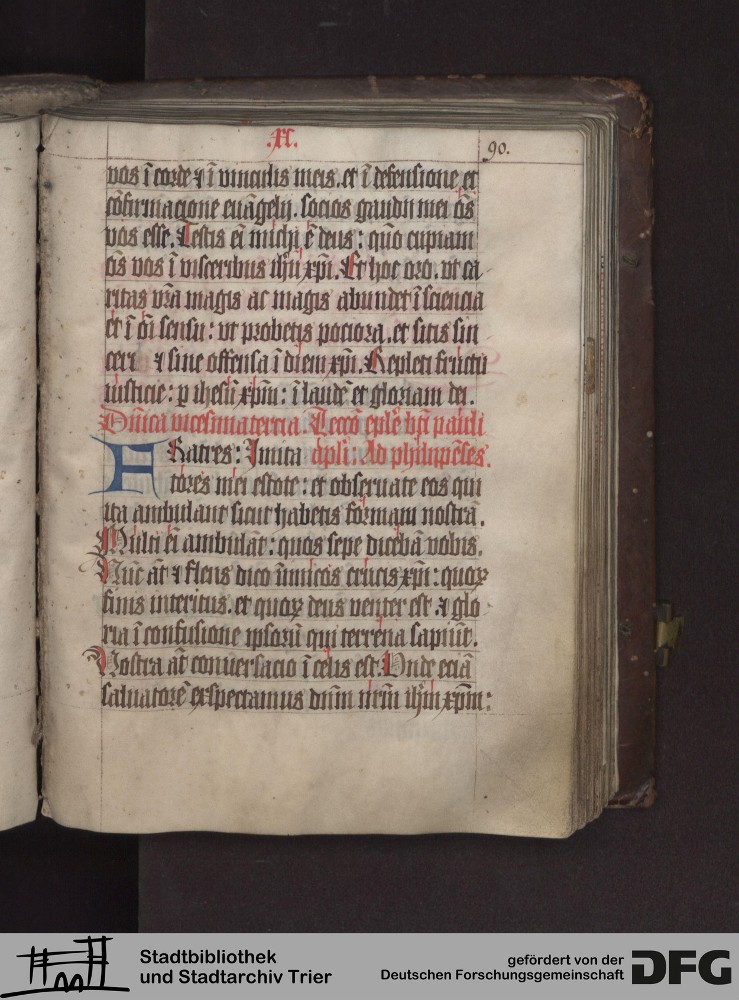 .xc.
90.
vos ī corde ⁊ ī vinculis meis. et ī defensione et
cōfirmacione euāgelij. socios gaudii mei ōs
vos esse. Testis ei michi ē deus: quō cupiam
ōs vos ī visceribus ihū xpī. Et hoc oro. vt ca
ritas vrā magis ac magis abundet ī sciencia
et ī ōi sensu: vt probetis pociora. et sitis sin
ceri ⁊ sine offensa ī diem xpī. Repleti fructu
iusticie: p ihesū xpm̄: ī laudē et gloriam dei.
Dn̄ica vicesimatercia. Leccō eplē bt̄i pauli
FRatres: Imita apli: Ad philippēses.
tores mei estote: et obseruate eos qui
ita ambulant sicut habetis formam nostrā.
Multi ei ambulāt: quos sepe dicebā vobis.
Nūc āt ⁊ flens dico inimicos crucis xpī: quoꝝ
finis interitus. et quoꝝ deus venter est. ⁊ glo
ria ī confusione ipsorū qui terrena sapiūt.
Nostra āt conuersacio ī celis est. Vnde eciā
saluatorē exspectamus dnm̄ nrm̄ ihm̄ xpm̄:
Stadtbibliothek
und Stadtarchiv Trier
gefördert von der
Deutschen Forschungsgemeinschaft
DFG